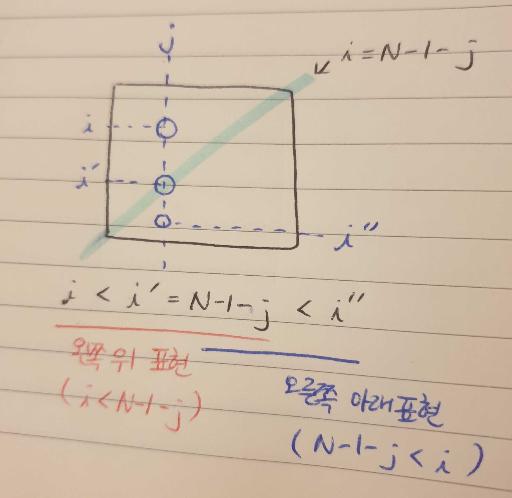 j
i = N-1-j
i
i′
i″
i < i′ = N-1-j < i″
왼쪽 위 표현
(i<N-1-j)
오른쪽 아래 표현
(N-1-j < i)